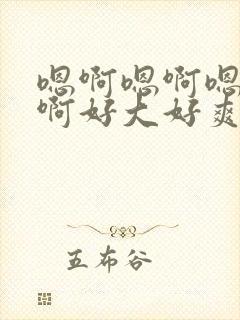 嗯啊嗯啊嗯
啊好大好爽
五布谷